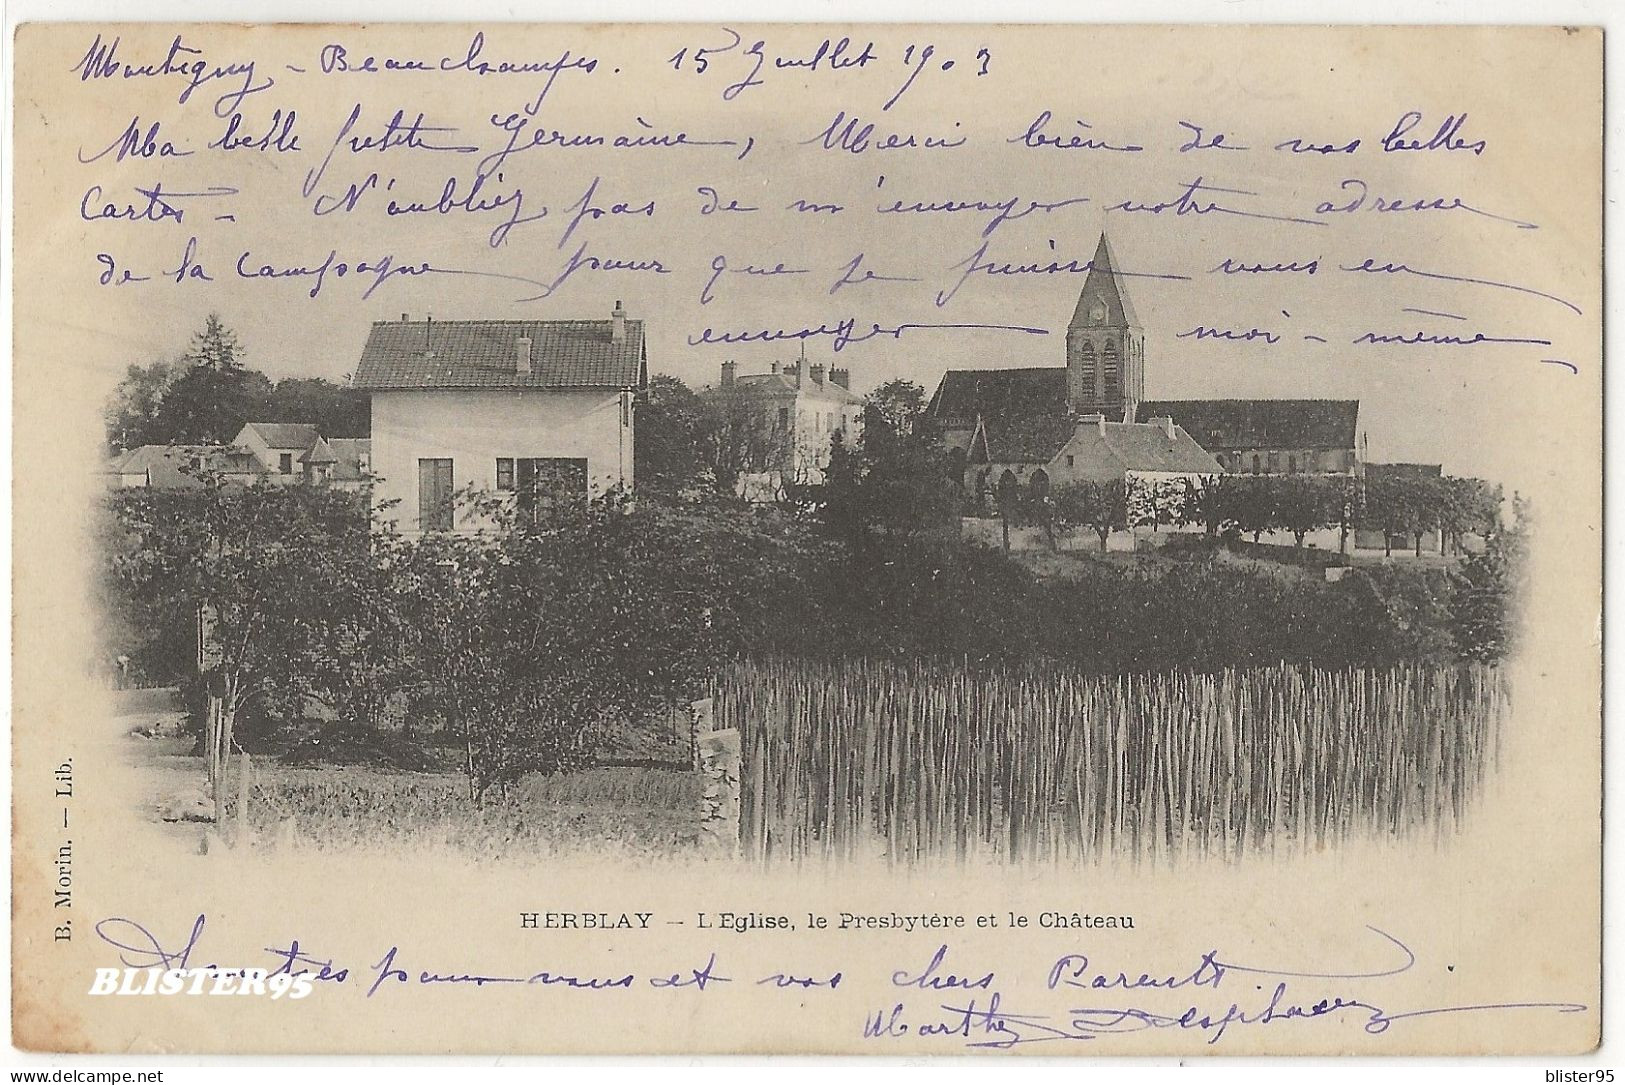 Montigny - Beauchamps. 15 Juillet 1903
Ma belle petite Germaine, Merci bien de vos belles
Cartes - N'oubliez pas de m'envoyer votre adresse
de la Campagne pour que je puisse vous en
envoyer moi-même
B. Morin. — Lib.
HERBLAY — L'Eglise, le Presbytère et le Château
pour vous et vos chers Parents
Marthe
BLISTER95
blister95